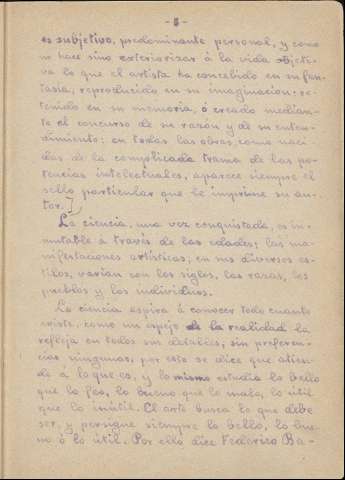 - 8 -
es subjetivo, predominante personal, y como
no hace sino exteriorizar á la vida objeti-
va lo que el artista ha concebido en su fan-
tasia, reproducido en su imaginacion: re-
tenido en su memoria, ó creado median-
te el concurso de su razón y de su enten-
dimiento: en todas las obras, como naci-
das de la complicada trama de las po-
tencias intelectuales, aparece siempre el
sello particular que le imprime su au-
tor.]
La ciencia, una vez conquistada, es in-
mutable a través de las edades; las ma-
nifestaciones artísticas, en sus diversos es-
tilos, varían con los siglos, las razas, los
pueblos y los individuos.
La ciencia aspira á conocer todo cuanto
existe, como un espejo de la realidad la
refleja en todos sus detalles, sin preferen-
cias ningunas; por esto se dice que atien-
de á lo que es, y lo mismo estudia lo bello
que lo feo, lo bueno que lo malo, lo útil
que lo inútil. El arte busca lo que debe
ser, y persigue siempre lo bello, lo bue-
no ó lo útil. Por ello dice Federico Ba-